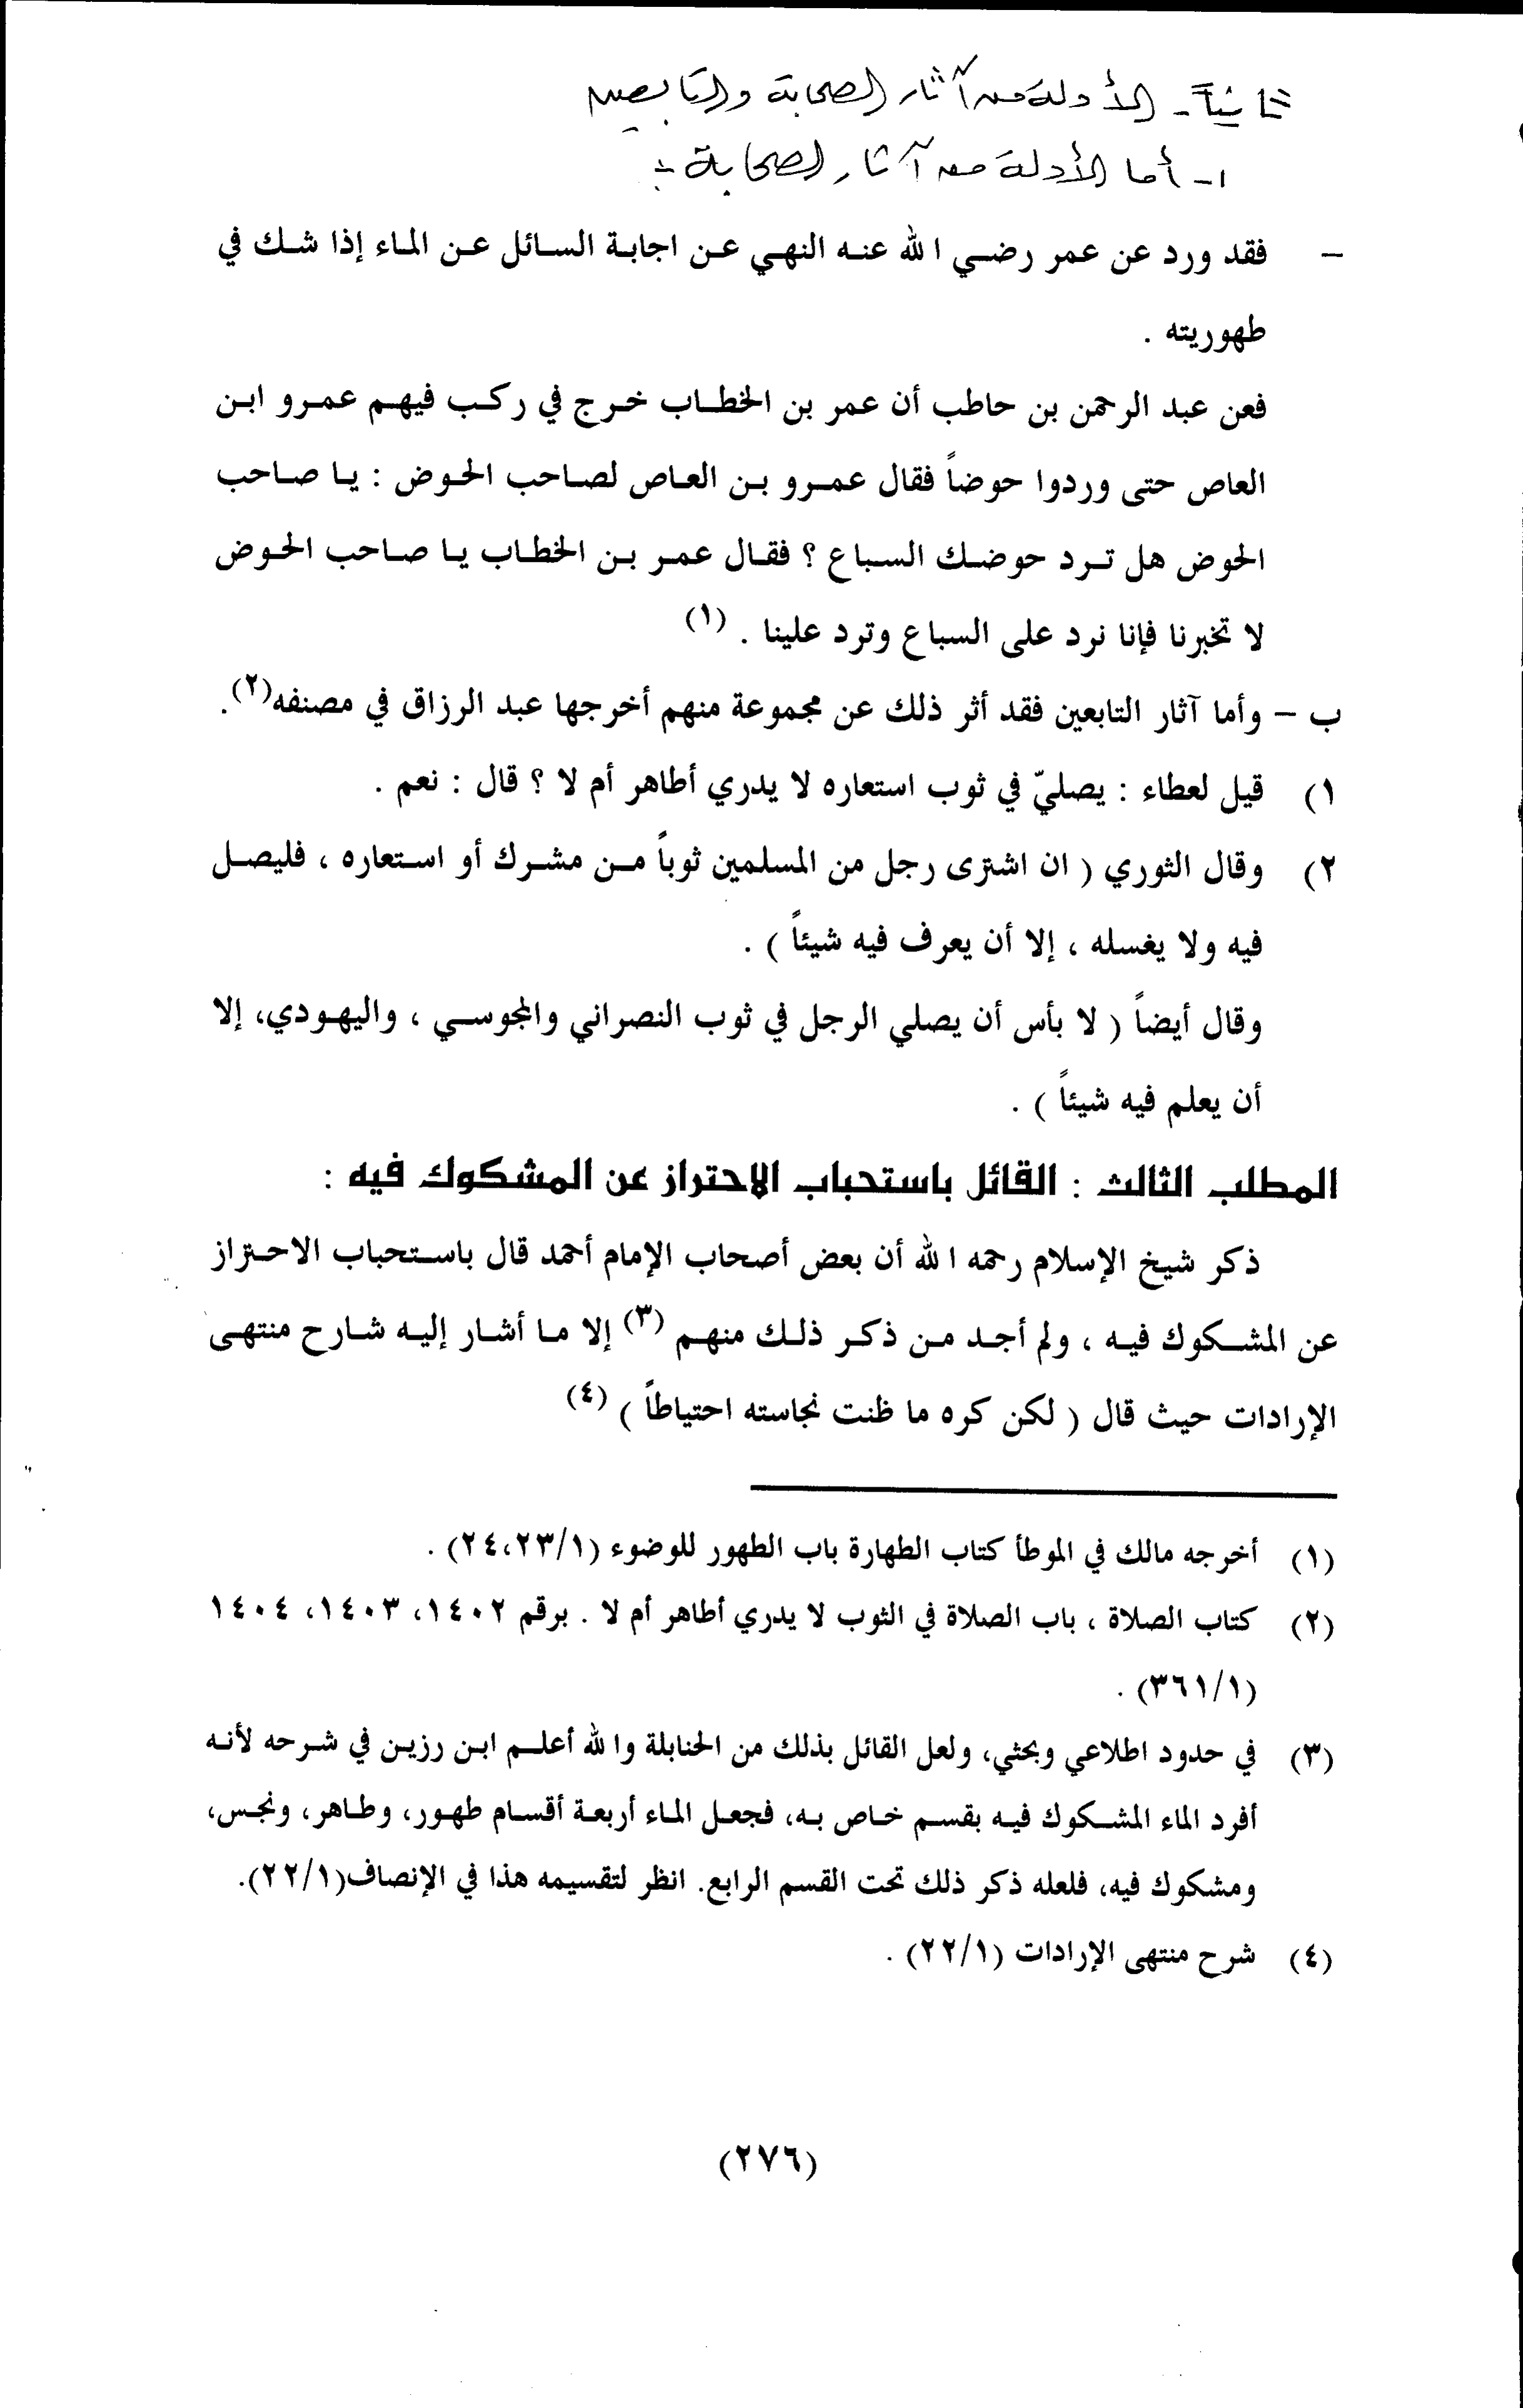 ثانياً - الأدلة من آثار الصحابة والتابعين
١- أما الأدلة من آثار الصحابة :
– فقد ورد عن عمر رضي الله عنه النهي عن اجابة السائل عن الماء إذا شك في
طهوريته .
فعن عبد الرحمن بن حاطب أن عمر بن الخطاب خرج في ركب فيهم عمرو ابن
العاص حتى وردوا حوضاً فقال عمرو بن العاص لصاحب الحوض : يا صاحب
الحوض هل ترد حوضك السباع ؟ فقال عمر بن الخطاب يا صاحب الحوض
لا تخبرنا فإنا نرد على السباع وترد علينا . (١)
ب – وأما آثار التابعين فقد أثر ذلك عن مجموعة منهم أخرجها عبد الرزاق في مصنفه(٢).
١) قيل لعطاء : يصليّ في ثوب استعاره لا يدري أطاهر أم لا ؟ قال : نعم .
٢) وقال الثوري ( ان اشترى رجل من المسلمين ثوباً من مشرك أو استعاره ، فليصل
فيه ولا يغسله ، إلا أن يعرف فيه شيئاً ) .
وقال أيضاً ( لا بأس أن يصلي الرجل في ثوب النصراني والمجوسي ، واليهودي، إلا
أن يعلم فيه شيئاً ) .
المطلب الثالث : القائل باستحباب الاحتراز عن المشكوك فيه :
ذكر شيخ الإسلام رحمه الله أن بعض أصحاب الإمام أحمد قال باستحباب الاحتراز
عن المشكوك فيه ، ولم أجد من ذكر ذلك منهم (٣) إلا ما أشار إليه شارح منتهى
الإرادات حيث قال ( لكن كره ما ظنت نجاسته احتياطاً ) (٤)
(١) أخرجه مالك في الموطأ كتاب الطهارة باب الطهور للوضوء (٢٤،٢٣/١) .
(٢) كتاب الصلاة ، باب الصلاة في الثوب لا يدري أطاهر أم لا . برقم ١٤٠٢، ١٤٠٣، ١٤٠٤
(٣٦١/١) .
(٣) في حدود اطلاعي وبحثي، ولعل القائل بذلك من الحنابلة والله أعلم ابن رزين في شرحه لأنه
أفرد الماء المشكوك فيه بقسم خاص به، فجعل الماء أربعة أقسام طهور، وطاهر، ونجس،
ومشكوك فيه، فلعله ذكر ذلك تحت القسم الرابع. انظر لتقسيمه هذا في الإنصاف(٢٢/١).
(٤) شرح منتهى الإرادات (٢٢/١) .
(٢٧٦)